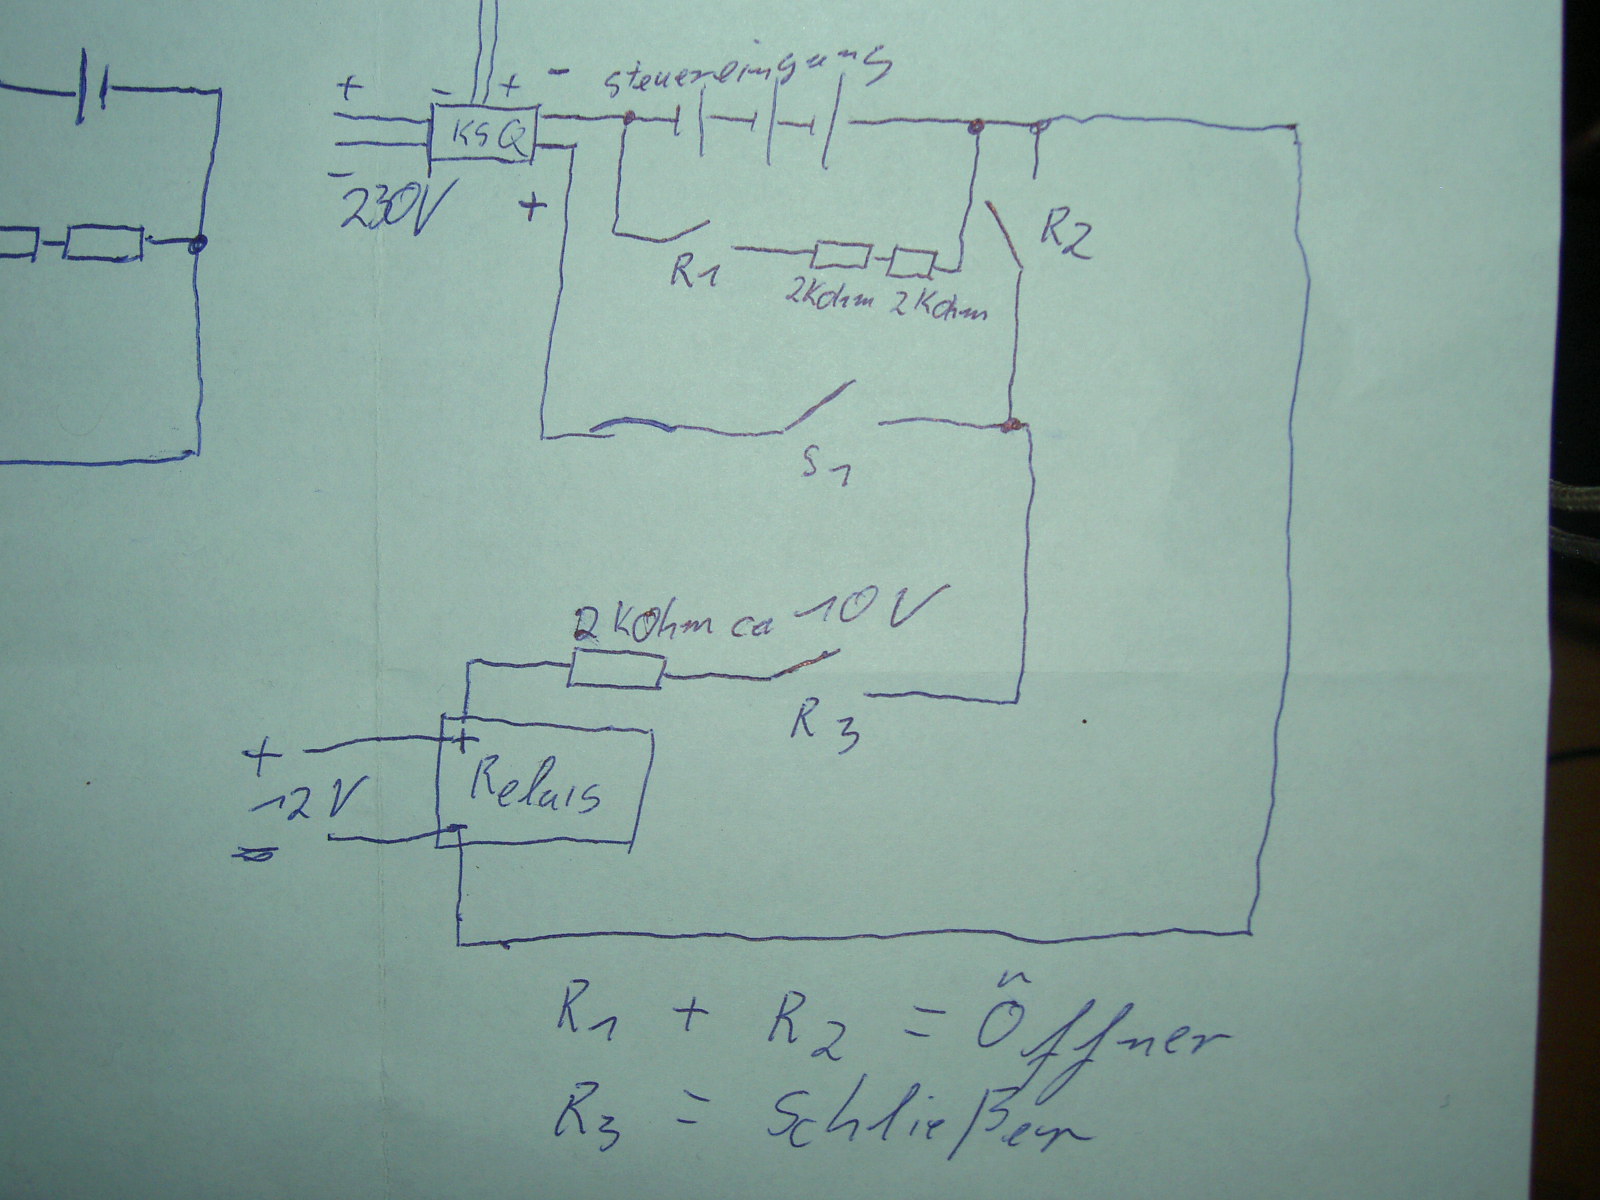 + - + - steuereingung
KSQ
-
230V +
R2
R1
2KOhm 2KOhm
S1
2KOhm ca 10V
R3
+ +
Relais
12V
R1 + R2 = Öffner
R3 = Schließer